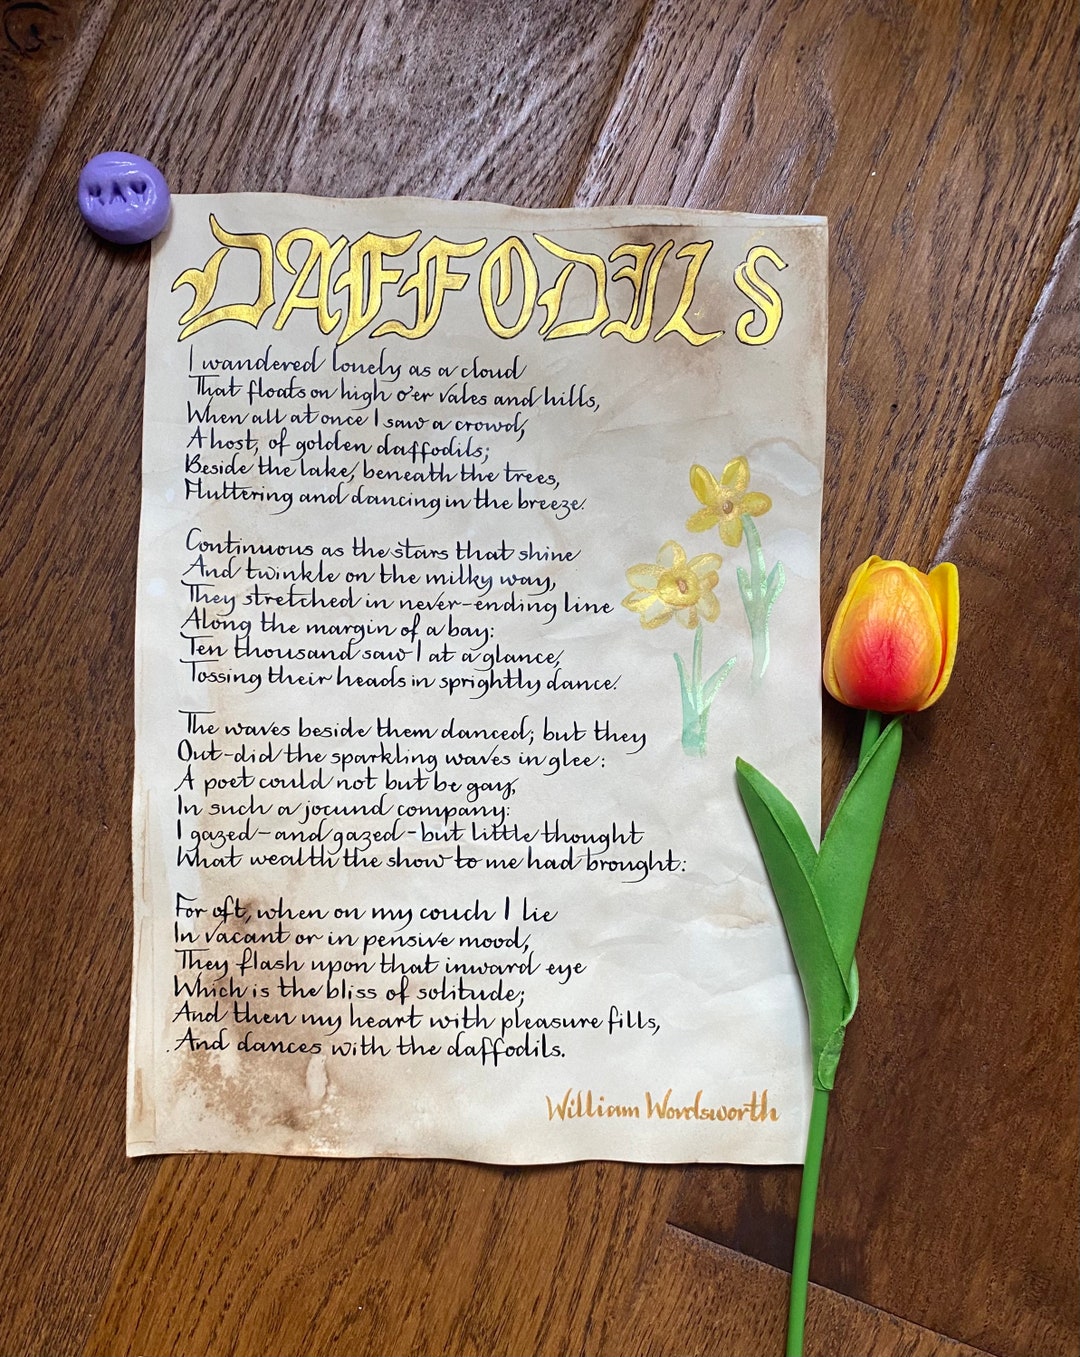 RAY
DAFFODILS
I wandered lonely as a cloud
That floats on high o'er vales and hills,
When all at once I saw a crowd,
A host, of golden daffodils;
Beside the lake, beneath the trees,
Fluttering and dancing in the breeze.
Continuous as the stars that shine
And twinkle on the milky way,
They stretched in never-ending line
Along the margin of a bay:
Ten thousand saw I at a glance,
Tossing their heads in sprightly dance.
The waves beside them danced; but they
Out-did the sparkling waves in glee:
A poet could not but be gay,
In such a jocund company:
I gazed-and gazed-but little thought
What wealth the show to me had brought:
For oft, when on my couch I lie
In vacant or in pensive mood,
They flash upon that inward eye
Which is the bliss of solitude;
And then my heart with pleasure fills,
And dances with the daffodils.
William Wordsworth